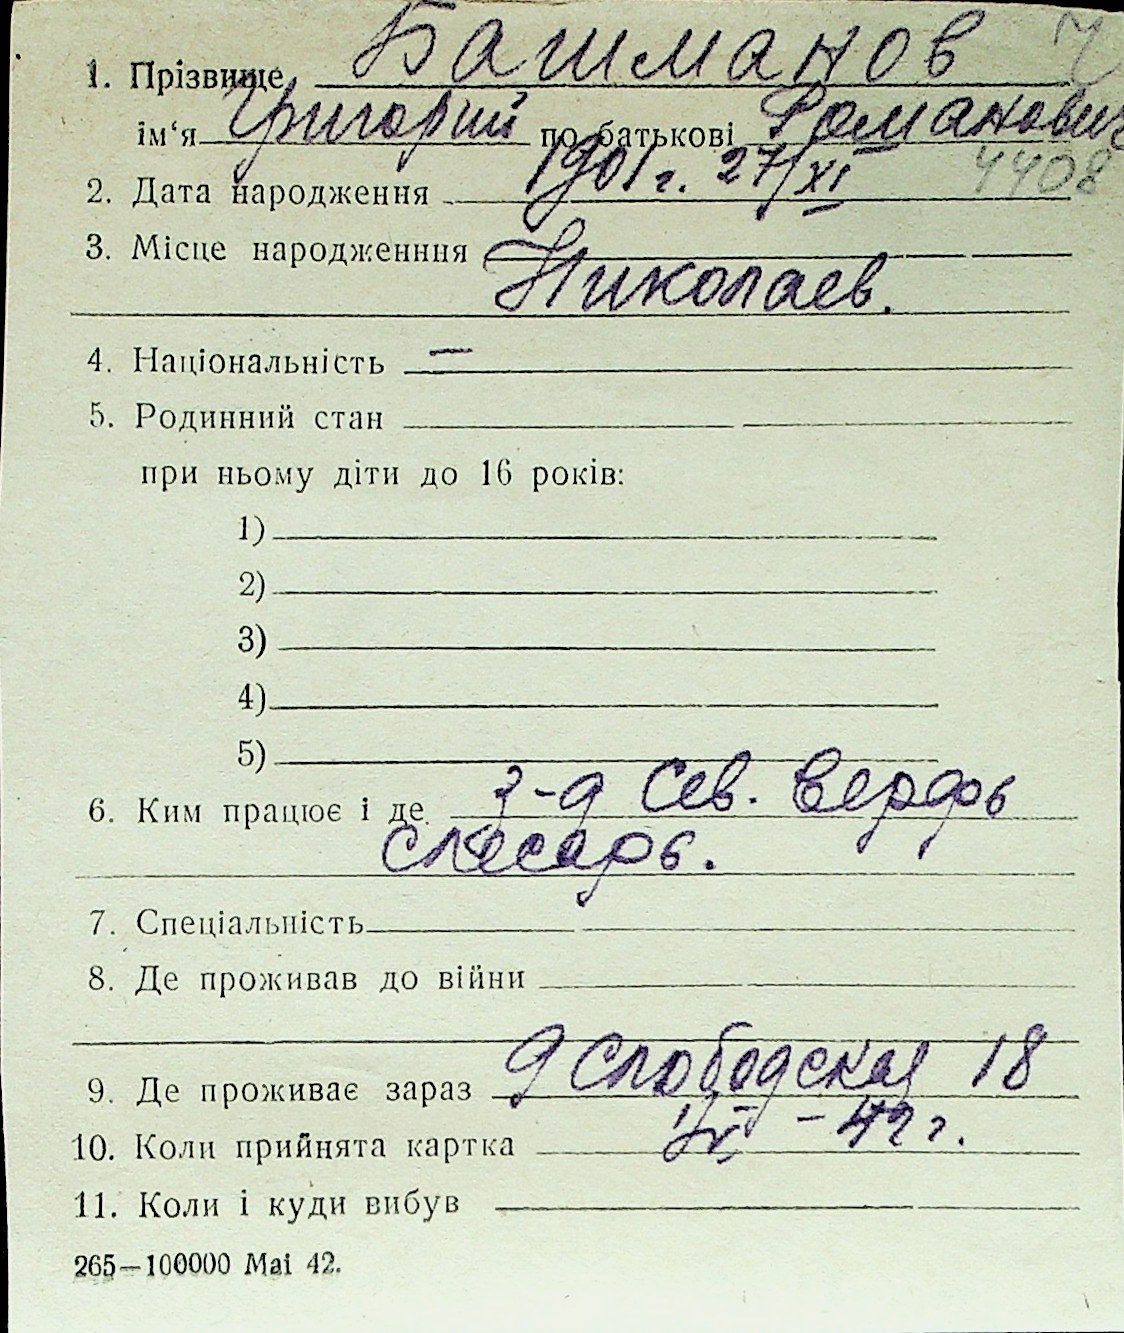 1. Прізвище Башманов
ім‘я Григорий по батькові Романович
4408
2. Дата народження 1901 г. 27/XI
3. Місце народженння
Николаев.
4. Національність —
5. Родинний стан
при ньому діти до 16 років:
1)
2)
3)
4)
5)
6. Ким працює і де з-д Сев. верфь
слесарь.
7. Спеціальність
8. Де проживав до війни
9. Де проживає зараз 9 Слободская 18
10. Коли прийнята картка – 42 г.
11. Коли і куди вибув
265—100000 Mai 42.